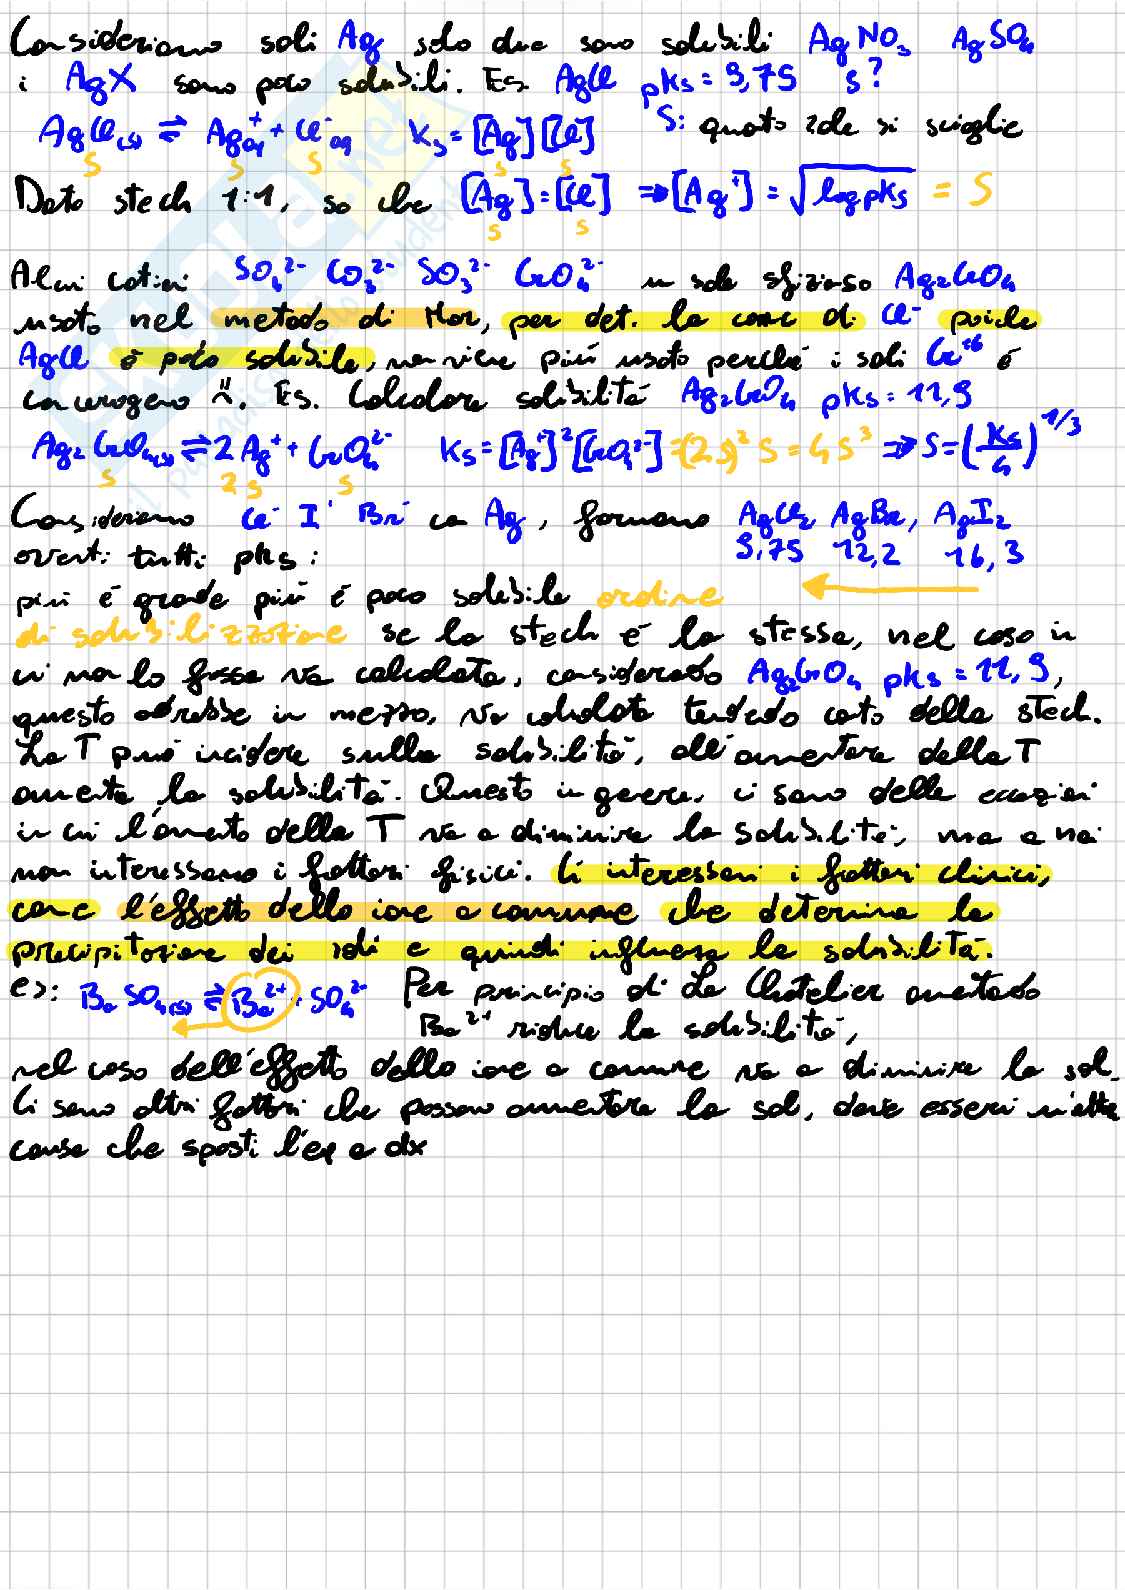 Consideriamo soli Ag solo due sono solubili AgNO3 AgSO4
i AgX sono poco solubili. Es. AgCl pKs = 9,75 s?
AgCl(s) ⇌ Ag+aq + Cl-aq Ks = [Ag][Cl] S: quanto sale si scioglie
S S S S S
Data stech 1:1, so che [Ag] = [Cl] ⇒ [Ag+] = √log pKs = S
S S
Alcuni cationi SO4 2- CO3 2- SO3 2- CrO4 2- un sale sfizioso Ag2CrO4
usato nel metodo di Mor, per det. la conc di Cl- poiche
AgCl è poco solubile, non viene più usato perchè i sali Cr+6 è
cancerogeno. Es. Calcolare solubilità Ag2CrO4 pKs = 11,9
Ag2CrO4(s) ⇌ 2Ag+ + CrO4 2- Ks = [Ag+]2[CrO4 2-] = (2s)2 S = 4S3 ⇒ S = (Ks/4)1/3
S 2S S
Consideriamo Cl- I- Br- con Ag, formano AgCl2 AgBr, AgI2
aventi tutti pKs: 9,75 12,2 16,3
più è grande più è poco solubile ordine
di solubilizzazione se la stech è la stessa, nel caso in
cui non lo fosse va calcolata, considerato Ag2CrO4 pKs = 11,9,
questo andrebbe in mezzo, va calcolata tenendo conto della stech.
La T può incidere sulla solubilità, all'aumentare della T
aumenta la solubilità. Questo in genere, ci sono delle eccezioni
in cui l'aumento della T va a diminuire la solubilità, ma a noi
non interessano i fattori fisici. Ci interessano i fattori chimici,
come l'effetto dello ione a comune che determina la
precipitazione dei sali e quindi influenza la solubilità.
es: BaSO4(s) ⇌ Ba2+ + SO4 2- Per principio di Le Chatelier aumentando
Ba2+ riduce la solubilità,
nel caso dell'effetto dello ione a comune va a diminuire la sol.
Ci sono altri fattori che possono aumentare la sol, deve esserci un'altra
causa che sposti l'eq a dx